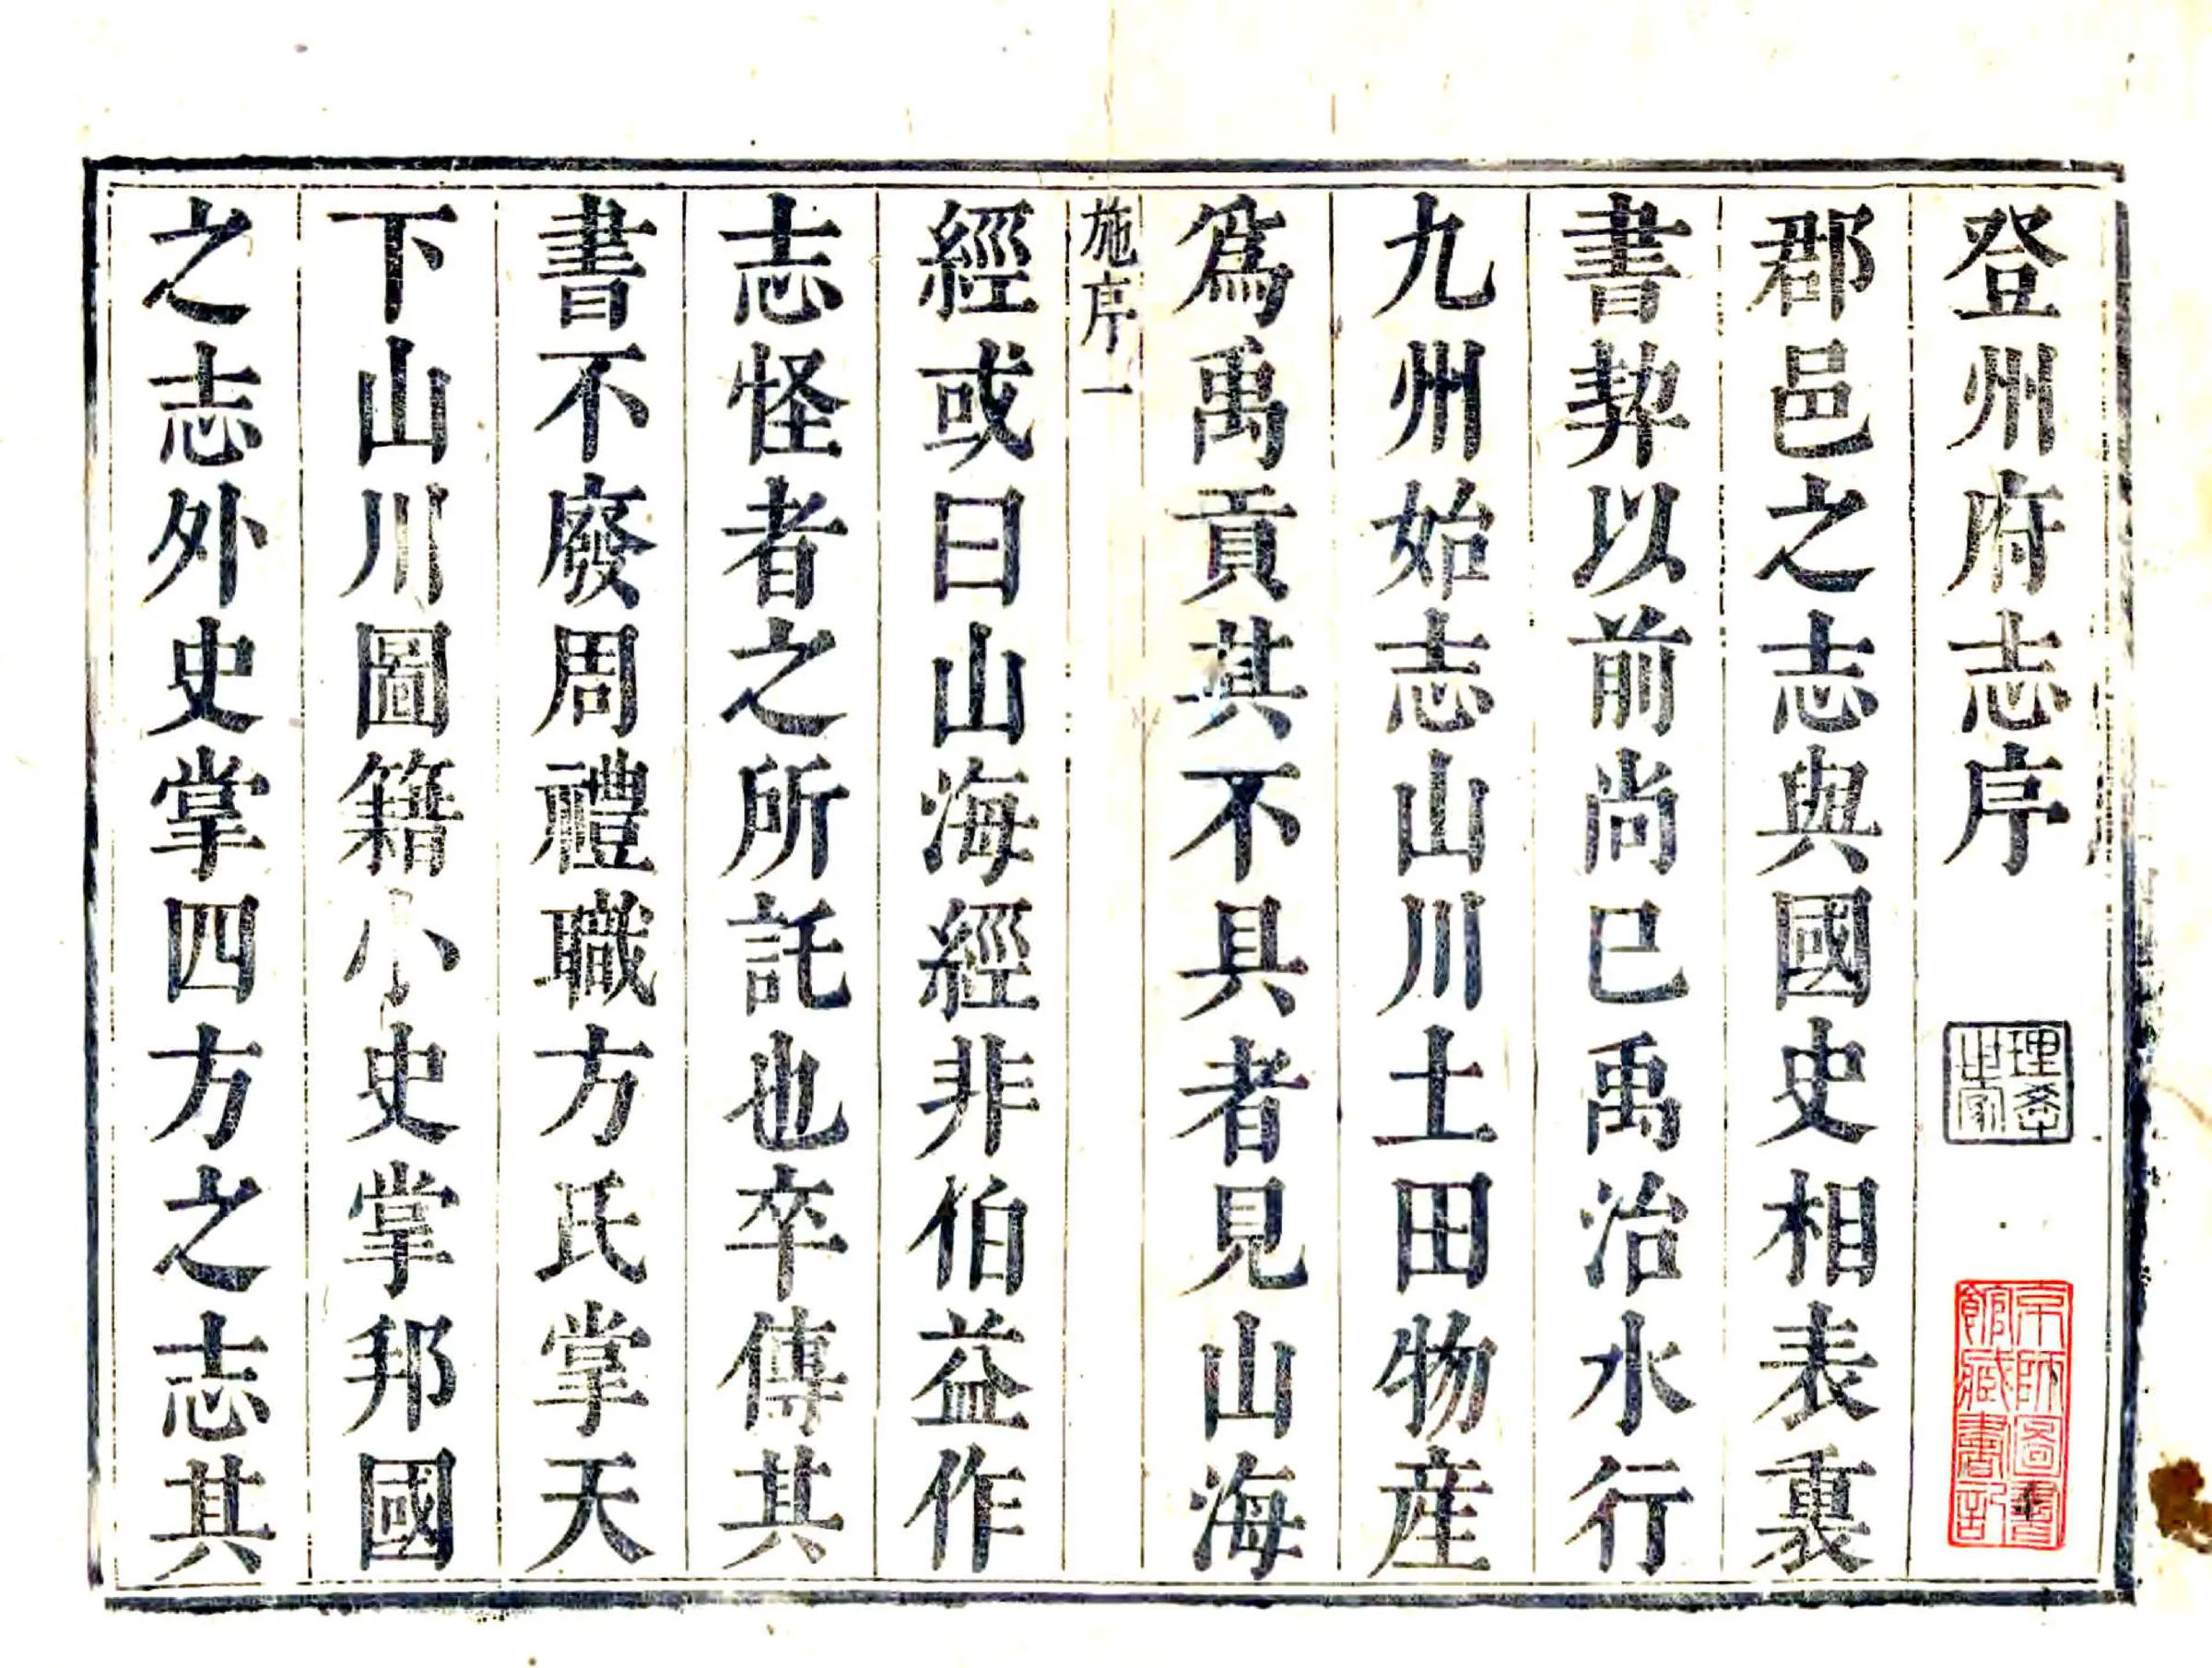 登州府志序
理學世家
京師圖書館藏書記
郡邑之志與國史相表裏
書契以前尚已禹治水行
九州始志山川土田物産
爲禹貢其不具者見山海
施序一
經或曰山海經非伯益作
志怪者之所託也卒傳其
書不廢周禮職方氏掌天
下山川圖籍小史掌邦國
之志外史掌四方之志其